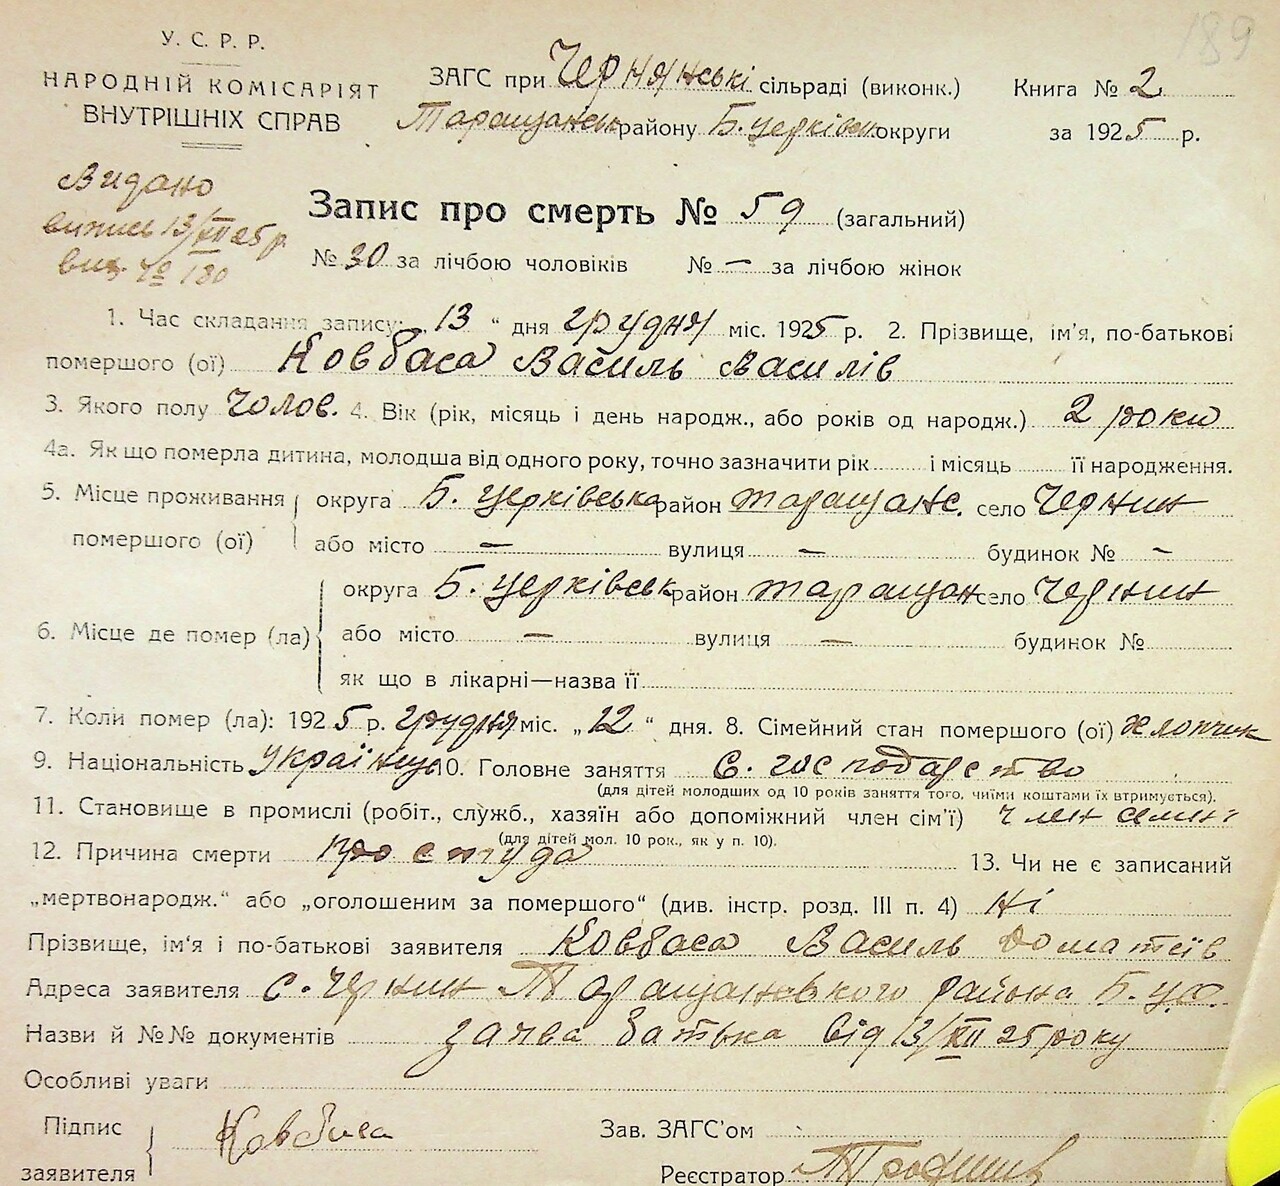 189
У. С. Р. Р.
НАРОДНІЙ КОМІСАРІЯТ
ВНУТРІШНІХ СПРАВ
ЗАГС при Чернянські сільраді (виконк.) Книга № 2
Таращанськ району Б. церківськ округи за 1925 р.
Видано
випись 13/XII 25 р.
вих. № 130
Запис про смерть № 59 (загальний)
№ 30 за лічбою чоловіків № — за лічбою жінок
1. Час складання запису: „13“ дня грудня міс. 1925 р. 2. Прізвище, ім'я, по-батькові
помершого (ої) Ковбаса Василь Василів
3. Якого полу чолов. 4. Вік (рік, місяць і день народж., або років од народж.) 2 роки
4а. Як що померла дитина, молодша від одного року, точно зазначити рік і місяць її народження.
5. Місце проживання помершого (ої) округа Б. церківська район таращанс. село Чернин
або місто — вулиця — будинок № —
6. Місце де помер (ла) округа Б. церківськ район таращан село Чернин
або місто — вулиця — будинок №
як що в лікарні—назва її
7. Коли помер (ла): 1925 р. грудня міс. „12“ дня. 8. Сімейний стан помершого (ої) хлопчик
9. Національність українець 10. Головне заняття с. господарство
(для дітей молодших од 10 років заняття того, чиїми коштами їх втримується).
11. Становище в промислі (робіт., служб., хазяїн або допоміжний член сім'ї) член семьї
(для дітей мол. 10 рок., як у п. 10).
12. Причина смерти простуда 13. Чи не є записаний
„мертвонародж.“ або „оголошеним за помершого“ (див. інстр. розд. III п. 4) Ні
Прізвище, ім'я і по-батькові заявителя Ковбаса Василь
Адреса заявителя с. Чернин Таращановкого района Б. Ц. О.
Назви й №№ документів заява батька від 13/XII 25 року
Особливі уваги
Підпис заявителя Ковбаса
Зав. ЗАГС'ом
Реєстратор